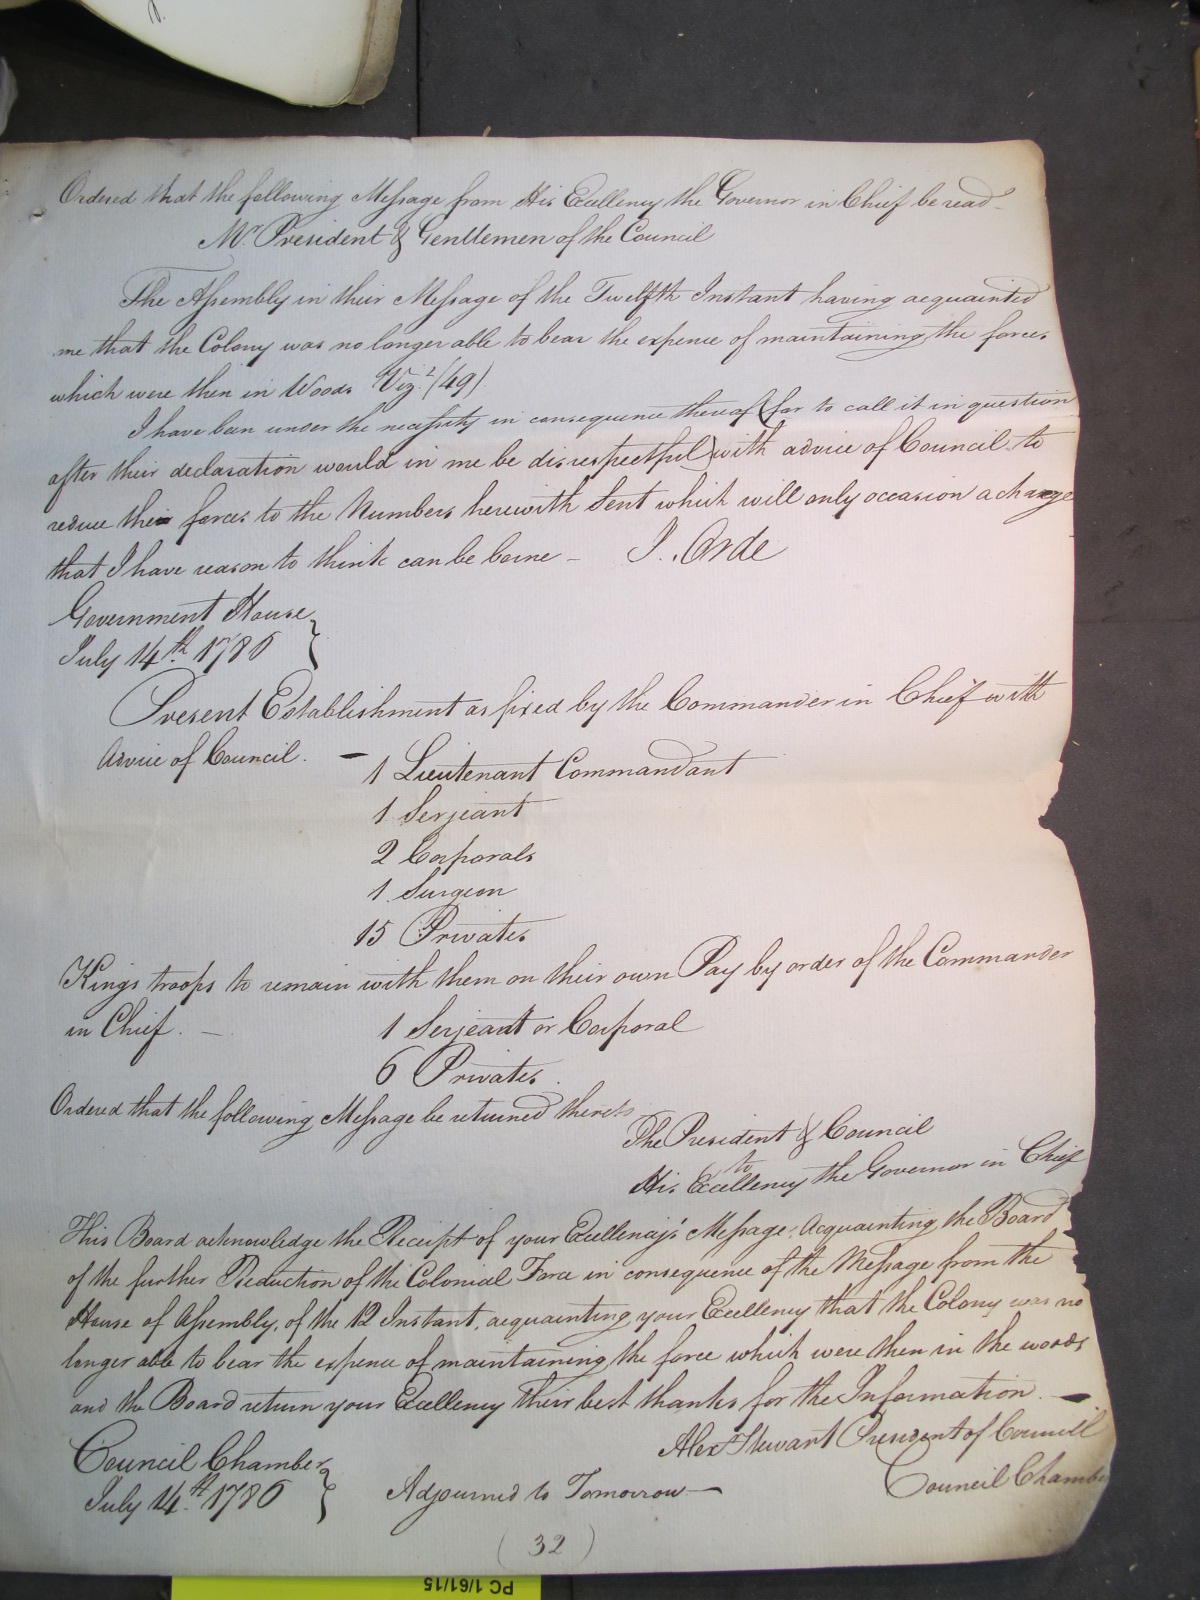 Ordered that the following Message from His Excellency the Governor in Chief be read
Mr. President & Gentlemen of the Council
The Assembly in their Message of the Twelfth Instant having acquainted
me that the Colony was no longer able to bear the expence of maintaining the forces
which were then in Woods Vizt. (49)
I have been under the necessity in consequence thereof (for to call it in question
after their declaration would in me be disrespectful) with advice of Council to
reduce their forces to the Numbers herewith Sent which will only occasion a charge
that I have reason to think can be borne – J. Orde
Government House
July 14th. 1786 }
Present Establishment as fixed by the Commander in Chief with
Advice of Council. –
1 Lieutenant Commandant
1 Serjeant
2 Corporals
1 Surgeon
15 Privates
Kings troops to remain with them on their own Pay by order of the Commander
in Chief. –
1 Serjeant or Corporal
6 Privates.
Ordered that the following Message be returned thereto
The President & Council
to
His Excellency the Governor in Chief
This Board acknowledge the Receipt of your Excellency's Message, Acquainting the Board
of the further Reduction of the Colonial Force in consequence of the Message from the
House of Assembly, of the 12 Instant, acquainting your Excellency that the Colony was no
longer able to bear the expence of maintaining the force which were then in the woods
and the Board return your Excellency their best thanks for the Information. –
Alexr. Stewart President of Council
Council Chamber
July 14th. 1786 }
Adjourned to Tomorrow –
Council Chamber
(32)
PC 1/61/15